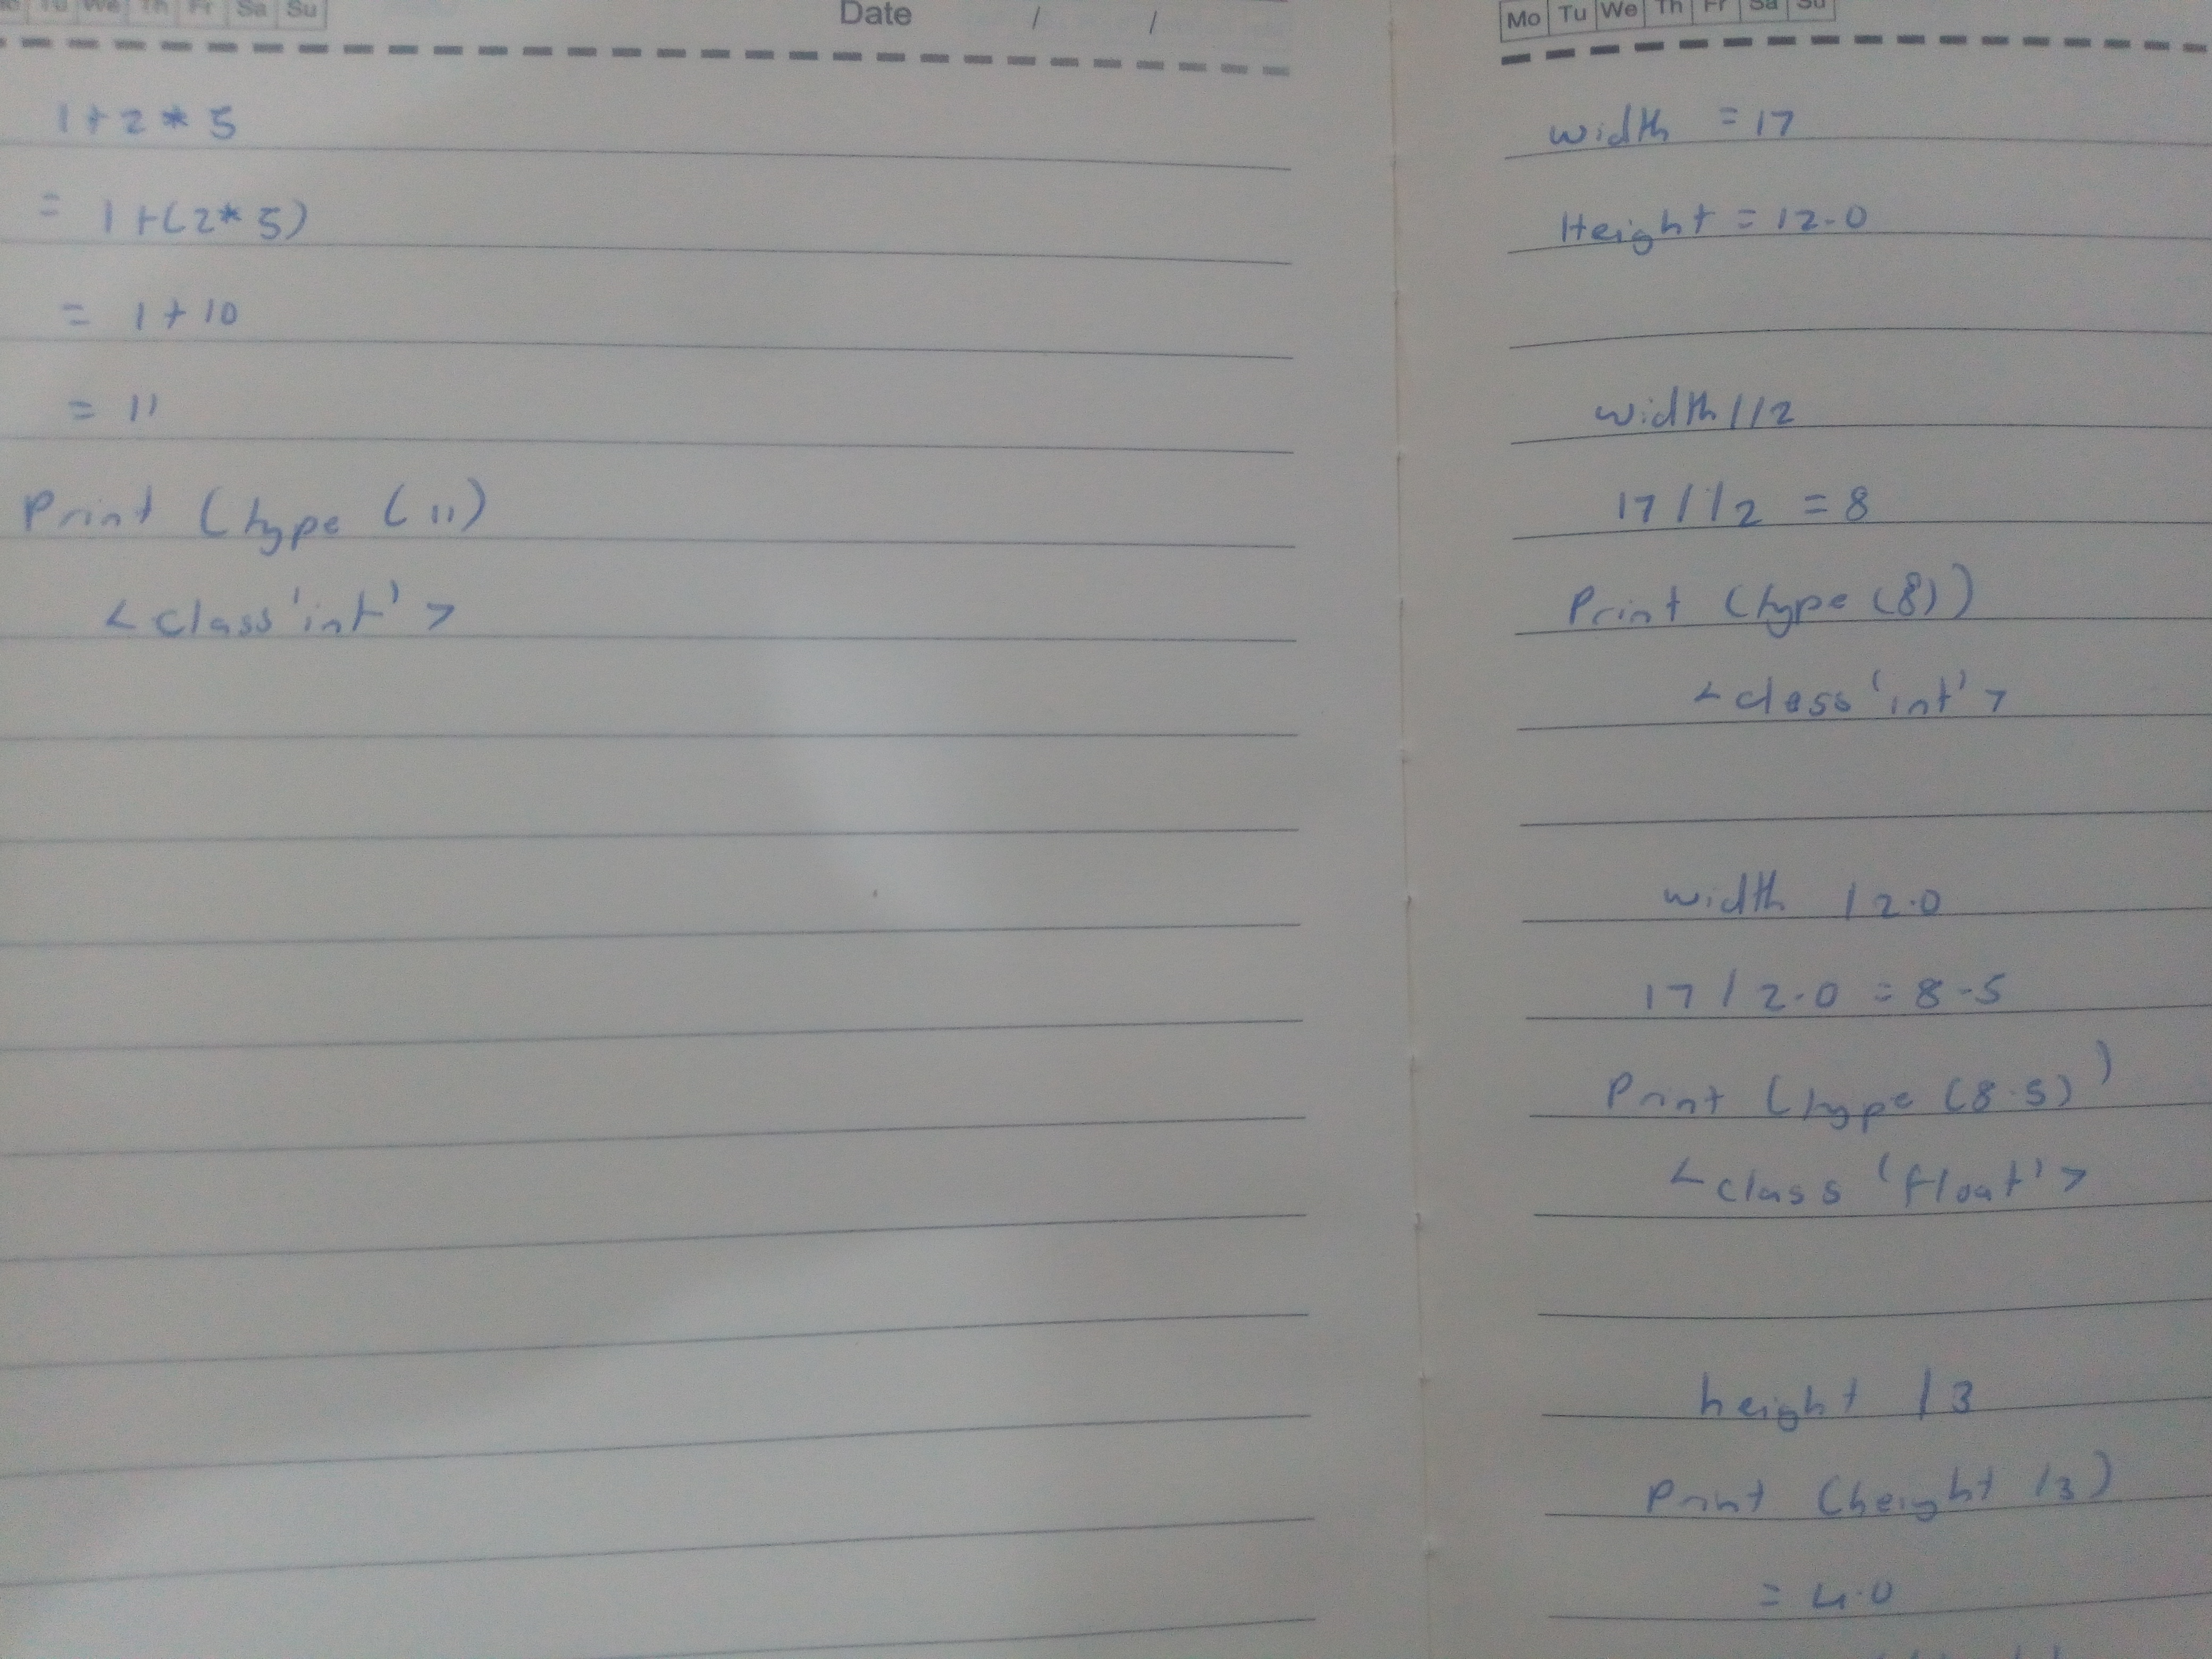 Tu We Th Fr Sa Su
Date / /
1+2*5
= 1+(2*5)
= 1+10
= 11
Print (type (11)
<class'int'>
Mo Tu We Th Fr Sa Su
width =17
Height = 12.0
width//2
17//2 = 8
Print (type (8))
<class 'int'>
width /2.0
17 / 2.0 = 8.5
Print (type (8.5))
<class 'float'>
height /3
Print (height /3)
= 4.0